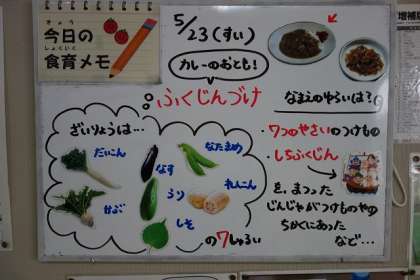 きょう
今日の
しょくいく
食育メモ
5/23(すい)
カレーのおとも!
ふくじんづけ
ざいりょうは…
だいこん
なす
なたまめ
かぶ
うり
れんこん
しそ
の7しゅるい
なまえのゆらいは?
・7つのやさいのつけもの
・しちふくじん
を、まつった
じんじゃがつけものやの
ちかくにあった
など…
増補